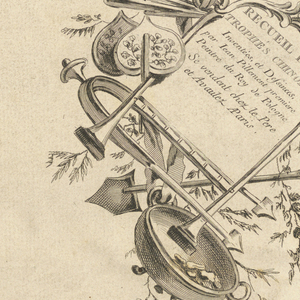 RECUEIL
TROPHÉS CHIN
Inventées, et Dessinées
par Jean Pillement premiere
Peintre du Roy de Pologne,
Se vendent chez le Pere
et Avaulez Paris